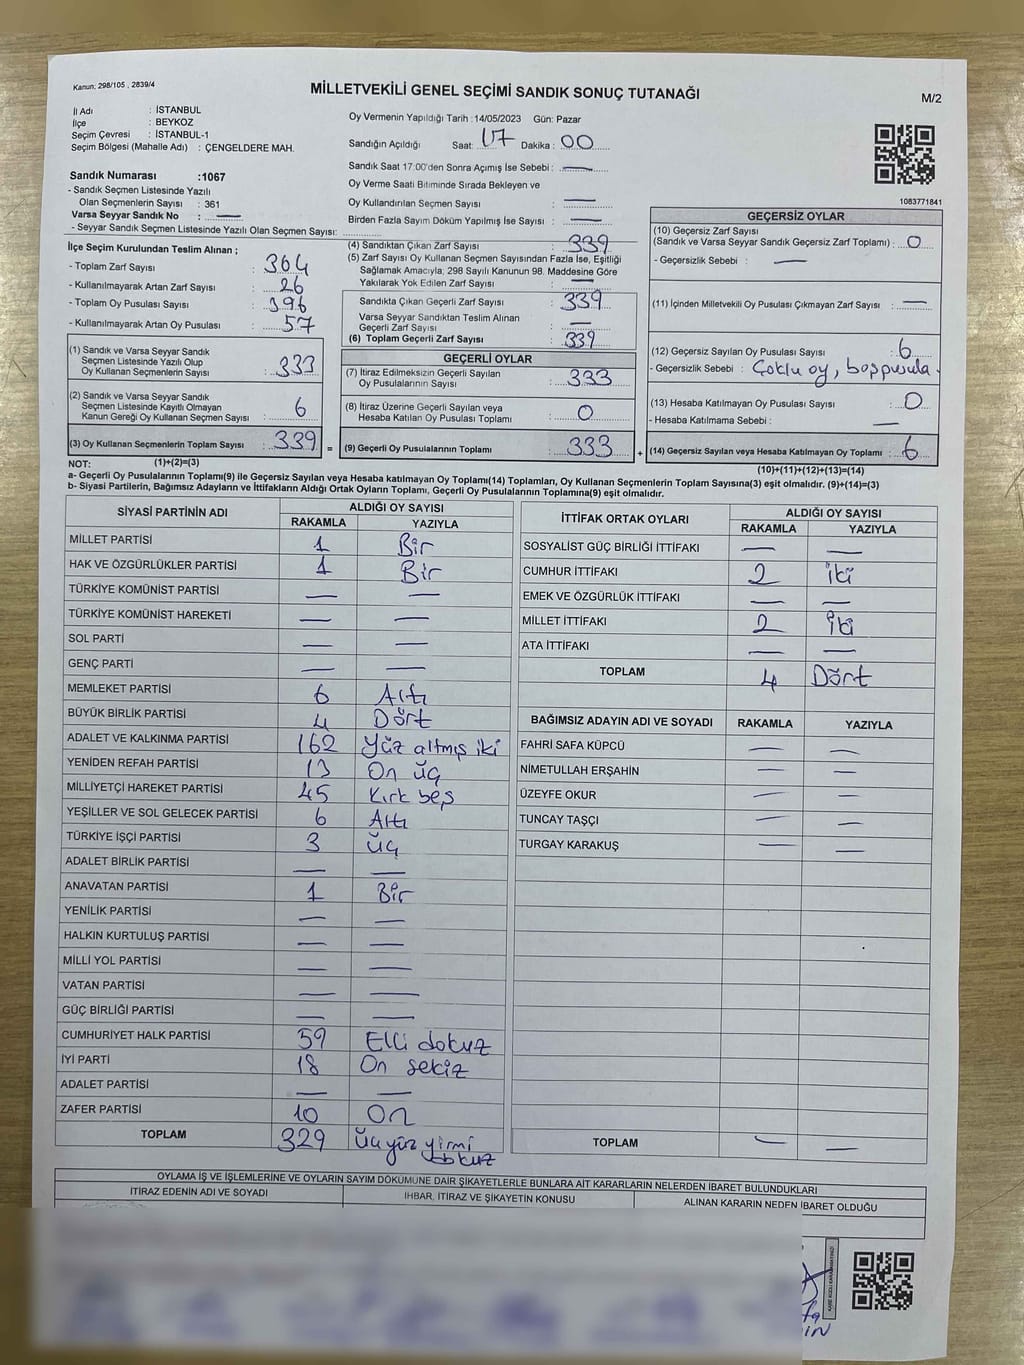 Kanun: 298/105 , 2839/4
MİLLETVEKİLİ GENEL SEÇİMİ SANDIK SONUÇ TUTANAĞI
M/2
İl Adı : İSTANBUL
İlçe : BEYKOZ
Seçim Çevresi : İSTANBUL-1
Seçim Bölgesi (Mahalle Adı) : ÇENGELDERE MAH.
Sandık Numarası :1067
- Sandık Seçmen Listesinde Yazılı
Olan Seçmenlerin Sayısı : 361
Varsa Seyyar Sandık No : —
- Seyyar Sandık Seçmen Listesinde Yazılı Olan Seçmen Sayısı:
Oy Vermenin Yapıldığı Tarih :14/05/2023 Gün: Pazar
Sandığın Açıldığı Saat: 17 Dakika : 00
Sandık Saat 17:00'den Sonra Açımış İse Sebebi : —
Oy Verme Saati Bitiminde Sırada Bekleyen ve
Oy Kullandırılan Seçmen Sayısı : —
Birden Fazla Sayım Döküm Yapılmış İse Sayısı : —
1083771841
İlçe Seçim Kurulundan Teslim Alınan ;
- Toplam Zarf Sayısı : 364
- Kullanılmayarak Artan Zarf Sayısı : 26
- Toplam Oy Pusulası Sayısı : 396
- Kullanılmayarak Artan Oy Pusulası : 57
(1) Sandık ve Varsa Seyyar Sandık
Seçmen Listesinde Yazılı Olup
Oy Kullanan Seçmenlerin Sayısı : 333
(2) Sandık ve Varsa Seyyar Sandık
Seçmen Listesinde Kayıtlı Olmayan
Kanun Gereği Oy Kullanan Seçmen Sayısı : 6
(3) Oy Kullanan Seçmenlerin Toplam Sayısı : 339 =
(4) Sandıktan Çıkan Zarf Sayısı : 339
(5) Zarf Sayısı Oy Kullanan Seçmen Sayısından Fazla İse, Eşitliği
Sağlamak Amacıyla, 298 Sayılı Kanunun 98. Maddesine Göre
Yakılarak Yok Edilen Zarf Sayısı : —
Sandıkta Çıkan Geçerli Zarf Sayısı : 339
Varsa Seyyar Sandıktan Teslim Alınan
Geçerli Zarf Sayısı : —
(6) Toplam Geçerli Zarf Sayısı : 339
GEÇERLİ OYLAR
(7) İtiraz Edilmeksizin Geçerli Sayılan
Oy Pusulalarının Sayısı : 333
(8) İtiraz Üzerine Geçerli Sayılan veya
Hesaba Katılan Oy Pusulası Toplamı : 0
(9) Geçerli Oy Pusulalarının Toplamı : 333 +
GEÇERSİZ OYLAR
(10) Geçersiz Zarf Sayısı
(Sandık ve Varsa Seyyar Sandık Geçersiz Zarf Toplamı) : 0
- Geçersizlik Sebebi : —
(11) İçinden Milletvekili Oy Pusulası Çıkmayan Zarf Sayısı : —
(12) Geçersiz Sayılan Oy Pusulası Sayısı : 6
- Geçersizlik Sebebi : Çoklu oy, boş pusula.
(13) Hesaba Katılmayan Oy Pusulası Sayısı : 0
- Hesaba Katılmama Sebebi : —
(14) Geçersiz Sayılan veya Hesaba Katılmayan Oy Toplamı : 6
NOT: (1)+(2)=(3)
(10)+(11)+(12)+(13)=(14)
a- Geçerli Oy Pusulalarının Toplamı(9) ile Geçersiz Sayılan veya Hesaba katılmayan Oy Toplamı(14) Toplamları, Oy Kullanan Seçmenlerin Toplam Sayısına(3) eşit olmalıdır. (9)+(14)=(3)
b- Siyasi Partilerin, Bağımsız Adayların ve İttifakların Aldığı Ortak Oyların Toplamı, Geçerli Oy Pusulalarının Toplamına(9) eşit olmalıdır.
SİYASİ PARTİNİN ADI ALDIĞI OY SAYISI
RAKAMLA YAZIYLA
MİLLET PARTİSİ 1 Bir
HAK VE ÖZGÜRLÜKLER PARTİSİ 1 Bir
TÜRKİYE KOMÜNİST PARTİSİ — —
TÜRKİYE KOMÜNİST HAREKETİ — —
SOL PARTİ — —
GENÇ PARTİ — —
MEMLEKET PARTİSİ 6 Altı
BÜYÜK BİRLİK PARTİSİ 4 Dört
ADALET VE KALKINMA PARTİSİ 162 Yüz altmış iki
YENİDEN REFAH PARTİSİ 13 On üç
MİLLİYETÇİ HAREKET PARTİSİ 45 Kırk beş
YEŞİLLER VE SOL GELECEK PARTİSİ 6 Altı
TÜRKİYE İŞÇİ PARTİSİ 3 üç
ADALET BİRLİK PARTİSİ — —
ANAVATAN PARTİSİ 1 Bir
YENİLİK PARTİSİ — —
HALKIN KURTULUŞ PARTİSİ — —
MİLLİ YOL PARTİSİ — —
VATAN PARTİSİ — —
GÜÇ BİRLİĞİ PARTİSİ — —
CUMHURİYET HALK PARTİSİ 59 Elli dokuz
İYİ PARTİ 18 On sekiz
ADALET PARTİSİ — —
ZAFER PARTİSİ 10 On
TOPLAM 329 üç yüz yirmi
dokuz
İTTİFAK ORTAK OYLARI ALDIĞI OY SAYISI
RAKAMLA YAZIYLA
SOSYALİST GÜÇ BİRLİĞİ İTTİFAKI — —
CUMHUR İTTİFAKI 2 iki
EMEK VE ÖZGÜRLÜK İTTİFAKI — —
MİLLET İTTİFAKI 2 iki
ATA İTTİFAKI — —
TOPLAM 4 Dört
BAĞIMSIZ ADAYIN ADI VE SOYADI RAKAMLA YAZIYLA
FAHRİ SAFA KÜPCÜ — —
NİMETULLAH ERŞAHİN — —
ÜZEYFE OKUR — —
TUNCAY TAŞÇI — —
TURGAY KARAKUŞ — —
TOPLAM — —
OYLAMA İŞ VE İŞLEMLERİNE VE OYLARIN SAYIM DÖKÜMÜNE DAİR ŞİKAYETLERLE BUNLARA AİT KARARLARIN NELERDEN İBARET BULUNDUKLARI
İTİRAZ EDENİN ADI VE SOYADI İHBAR, İTİRAZ VE ŞİKAYETİN KONUSU ALINAN KARARIN NEDEN İBARET OLDUĞU